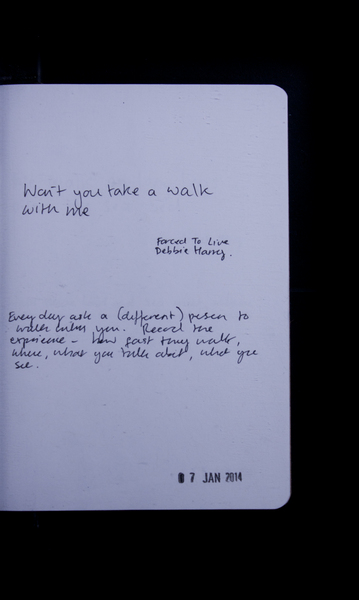 Won't you take a walk
with me
Forced To Live
Debbie Harry.
Every day ask a (different) person to
walk with you. Record the
experience - how fast they walk,
where, what you talk about, what you
see.
0 7 JAN 2014